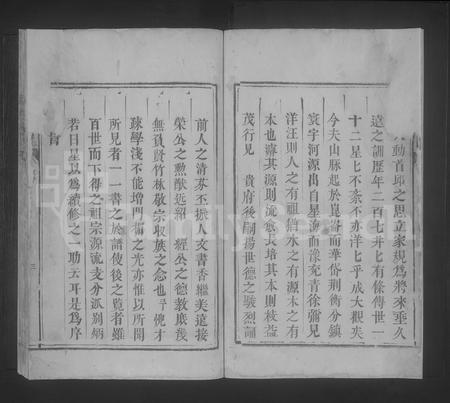 動首邱之思立家規為將來垂久
遠之謀歷年二百七井七有條傳世一
十二星七不紊不亦洋七乎成大觀矣
今夫山脈起於崑崙而華岱荆衡分鎮
寰宇河源出自星海而漾兗青徐彌見
洋汪則人之有祖猶水之有源木之有
本也濬其源則流愈長培其本則枝益
茂行見 貴府後嗣揚世德之駿烈誦
前人之清芬丕振人文書香繼美遠接
榮公之勲猷近紹 經公之德教庶幾
無負賢竹林敬宗収族之念也予儓才
疎學淺不能增門楣之光亦惟以所聞
所見者一一書之於譜使後之覽者雖
百世而下得之祖宗源流支分派別炳
若日星以為續修之一助云耳是為序